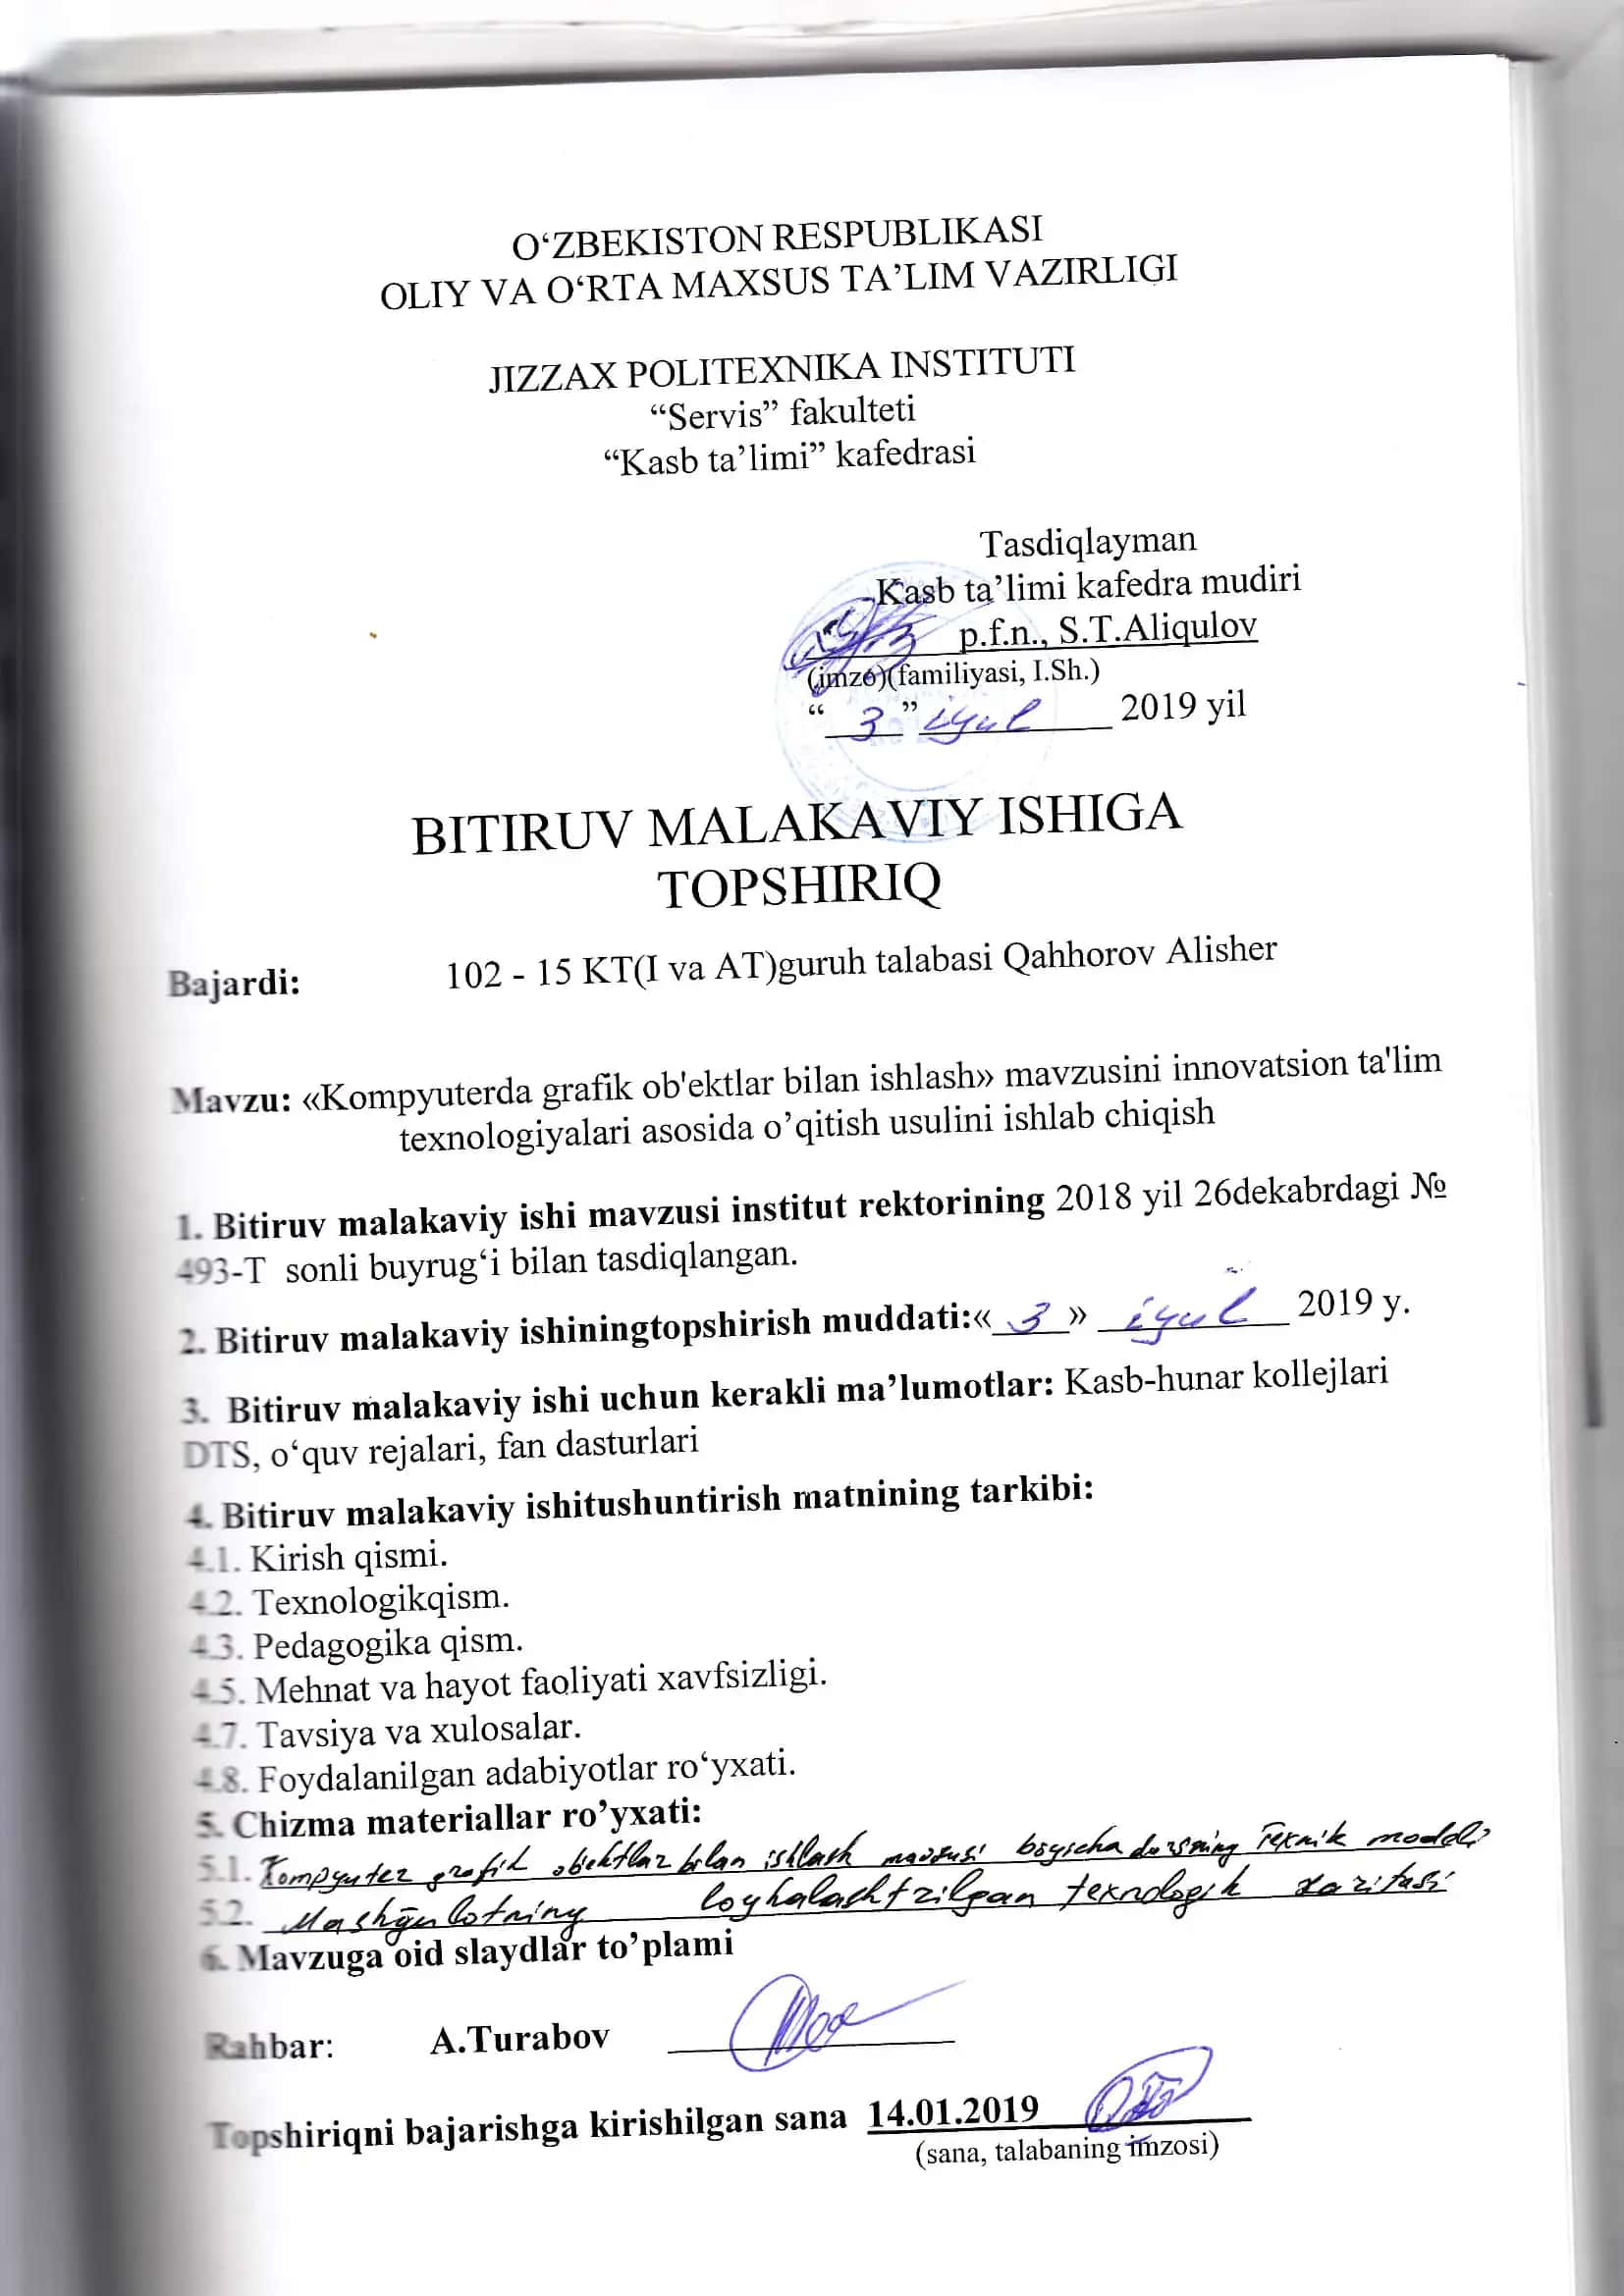 O‘ZBEKISTON RESPUBLIKASI
OLIY VA O‘RTA MAXSUS TA’LIM VAZIRLIGI
JIZZAX POLITEXNIKA INSTITUTI
“Servis” fakulteti
“Kasb ta’limi” kafedrasi
Tasdiqlayman
Kasb ta’limi kafedra mudiri
p.f.n., S.T.Aliqulov
(imzo)(familiyasi, I.Sh.)
“ 3 ” iyul 2019 yil
BITIRUV MALAKAVIY ISHIGA
TOPSHIRIQ
Bajardi: 102 - 15 KT(I va AT)guruh talabasi Qahhorov Alisher
Mavzu: «Kompyuterda grafik ob'ektlar bilan ishlash» mavzusini innovatsion ta'lim
texnologiyalari asosida o’qitish usulini ishlab chiqish
1. Bitiruv malakaviy ishi mavzusi institut rektorining 2018 yil 26dekabrdagi №
493-T sonli buyrug‘i bilan tasdiqlangan.
2. Bitiruv malakaviy ishiningtopshirish muddati:« 3 » iyul 2019 y.
3. Bitiruv malakaviy ishi uchun kerakli ma’lumotlar: Kasb-hunar kollejlari
DTS, o‘quv rejalari, fan dasturlari
4. Bitiruv malakaviy ishitushuntirish matnining tarkibi:
4.1. Kirish qismi.
4.2. Texnologikqism.
4.3. Pedagogika qism.
4.5. Mehnat va hayot faoliyati xavfsizligi.
4.7. Tavsiya va xulosalar.
4.8. Foydalanilgan adabiyotlar ro‘yxati.
5. Chizma materiallar ro’yxati:
5.1. Kompyuter grafik obektlar bilan ishlash mavzusi boyicha darsning Texnik modeli
5.2. Mashg‘ulotning loyhalashtrilgan texnologik xaritasi
6. Mavzuga oid slaydlar to’plami
Rahbar: A.Turabov
Topshiriqni bajarishga kirishilgan sana 14.01.2019
(sana, talabaning imzosi)